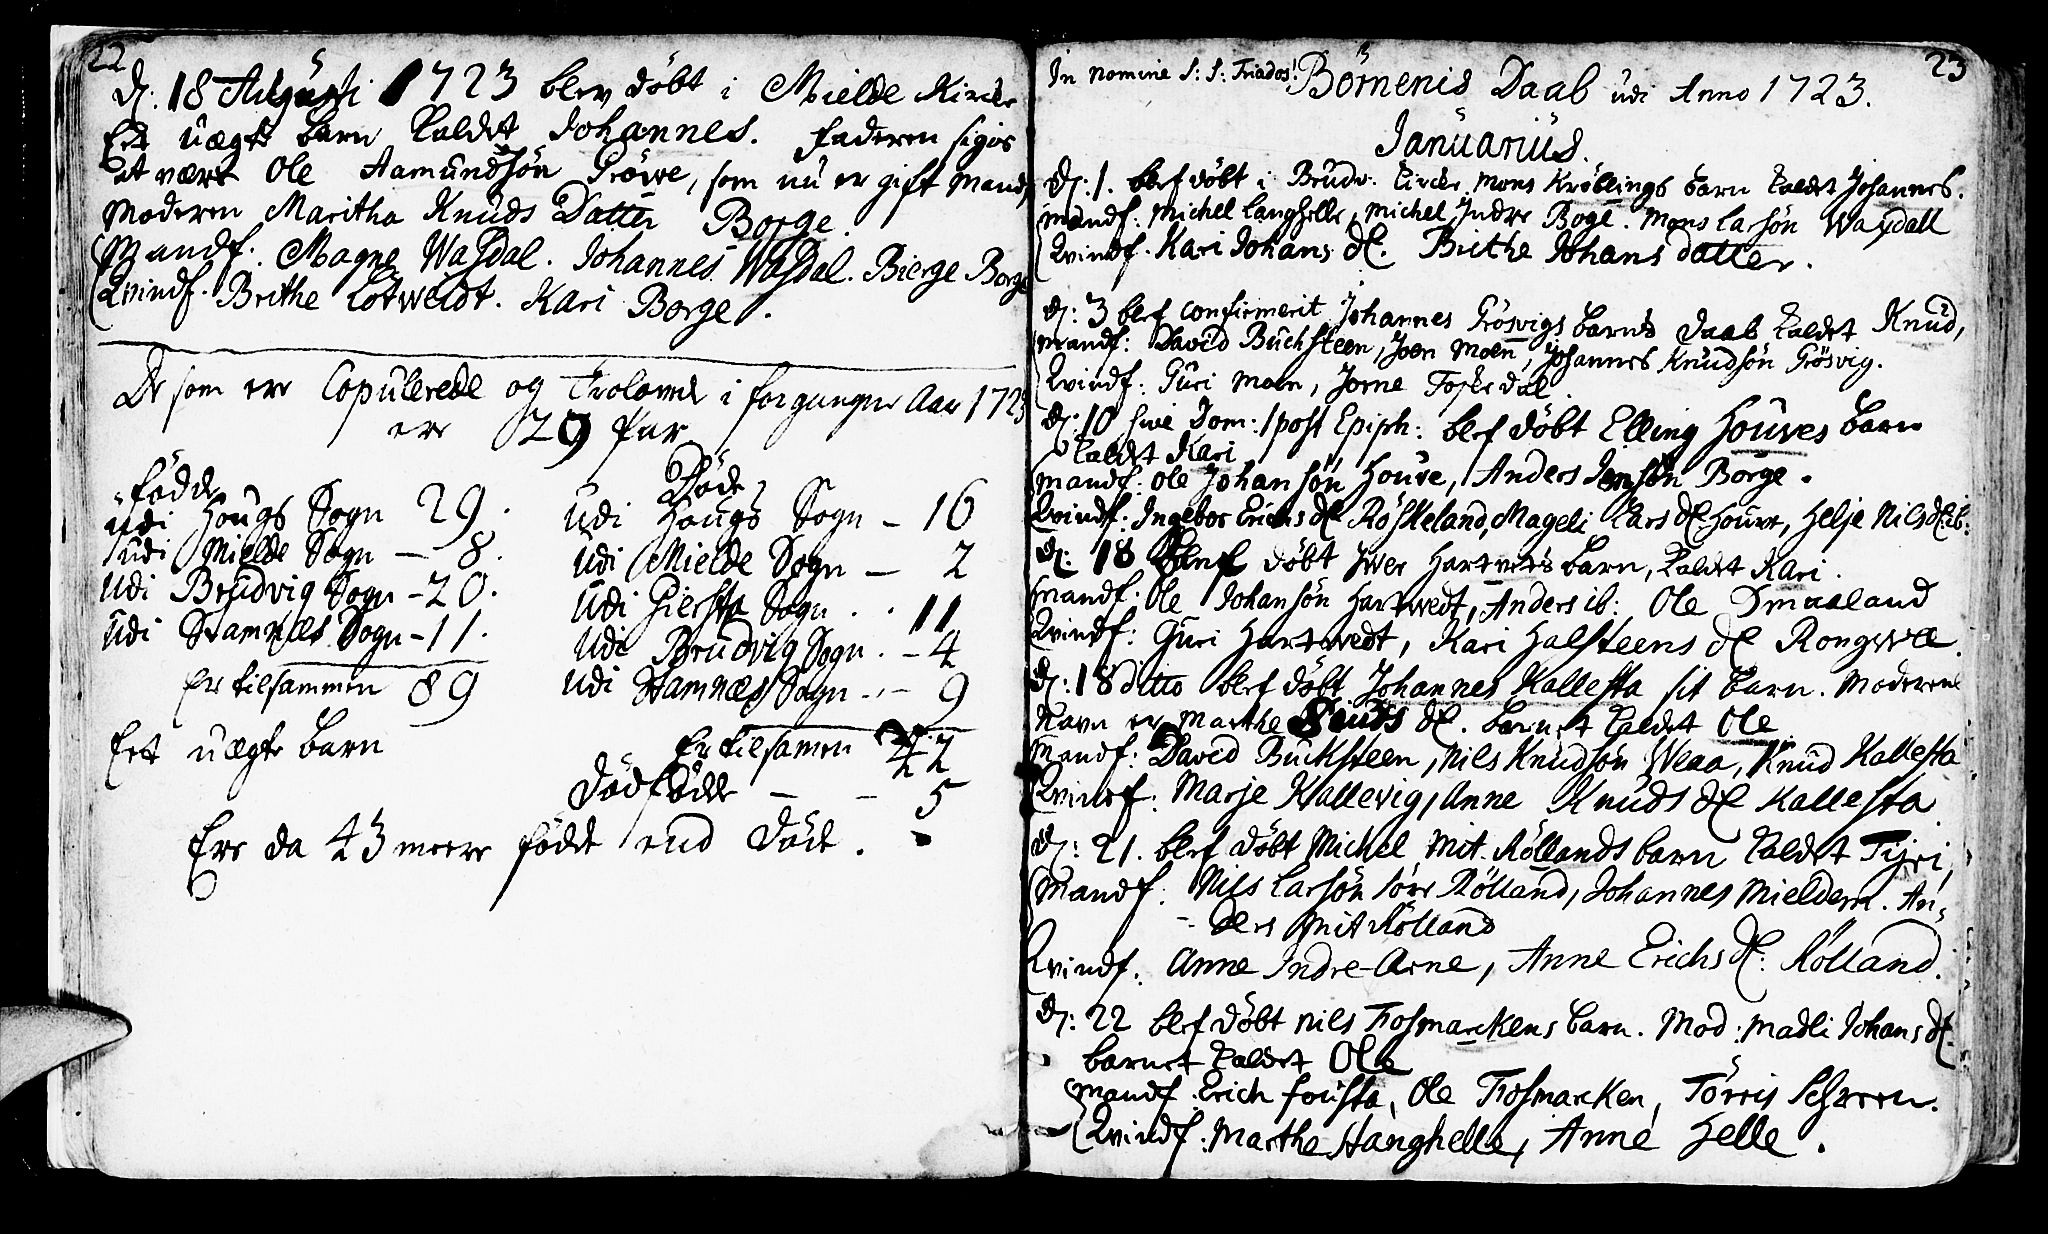 22
d: 18 Augusti 1723 blev döbt i Mielde Kircke
Eet uægte barn kaldet Johannes. faderen siges
at være Ole Aamundsön Gröwe, som nu er gift Mand,
Moderen Maritha Knuds Datter Borge.
Mandf: Magne Wasdal. Johannes Wasdal. Bierge Borge
Qvindf. Brithe Lotweidt. Kari Borge.
De som ere Copulerede og Trolovede i forgangne Aar 1723
ere 29 Par
födde
udi Hougs Sogn 29.
udi Mielde Sogn — 8.
Udi Brudvig Sogn - 20.
Udi Stamnæs Sogn - 11.
Er tilsammen 89
Eet uægte barn
Döde
Udi Hougs Sogn - 16
Udi Mielde Sogn — 2
Udi Giersta Sogn . . 11
Udi Brudvig Sogn . - 4
udi Stamnæs Sogn . - 9
Er tilsamen 42
Dödfödde — — 5
Ere da 43 meere födde end döde.
23
In nomine S: S: Triados! Börnenis Daab udi Anno 1723.
Januarius.
d: 1. blef döbt i Brudv: Kircke Mons Kröllings barn kaldet Johannes.
Mandf: Michel Langhelle, Michel Indre Boge. Mons Larsön Wasdall
Qvindf. Kari Johans dl. Brithe Johans datter.
d: 3 blef confirmerit Johannes Grösvigs barns daab kaldet Knud,
Mandf: David Buchsteen, Joen Moen, Johannes Knudsön Grösvig.
Qvindf: Guri Moen, Jorne Fosse dal.
d: 10 sive Dom: 1 post Epiph: blef döbt Elling Houves barn
kaldet Kari
Mandf: Ole Johansön Houve, Anders Jensön Borge.
Qvindf: Ingebor Erichs dl Röskeland, Mageli Lars dl Houve, Helje Nils dl: ib:
d: 18 blef döbt Iver Hartvets barn, kaldet Kari.
Mandf. Ole Johansön Hartwedt, Anders ib: Ole Smaaland
Qvindf: Guri Hartwedt, Kari Halsteens dl Rongwe.
d: 18 ditto blef döbt Johannes Kallesta sit barn. Moderens
Navn er Marthe dl. barnet kaldet Ole
Mandf: David Bucksteen, Nils Knudsön Weaa, Knud Kallesta
Qvindf: Marje Kallevig, Anne Knuds dl Kallesta
d: 21. blef döbt Michel Mit-Röllands barn kaldet Tyri,
Mandf: Nils Larsön Röllano, Johannes Mieldem. An-
- ders Mit Rölland
Qvindf. Anne Indre-Arne, Anne Erichs dl: Rölland.
d: 22 blef döbt Nils Trosmarckens barn. Mod: Madli Johans dl.
barnet kaldet Ole
Mandf. Erich fousta, Ole Trosmarcken, Törris
Qvindf: Marthe Hanghelle, Anne Helle.